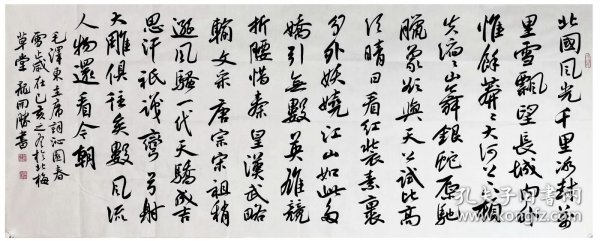 北國風光千里冰封萬
里雪飄望長城內外
惟餘莽々大河上下頓
失滔々山舞銀蛇原馳
臘象欲與天公試比高
須晴日看紅裝素裹
分外妖嬈江山如此多
嬌引無數英雄競
折腰惜秦皇漢武略
輸文采唐宗宋祖稍
遜風騷一代天驕成吉
思汗祇識彎弓射
大雕俱往矣數風流
人物還看今朝
毛澤東主席詞沁園春
雪歲在己亥之於北梅
草堂龍開勝書